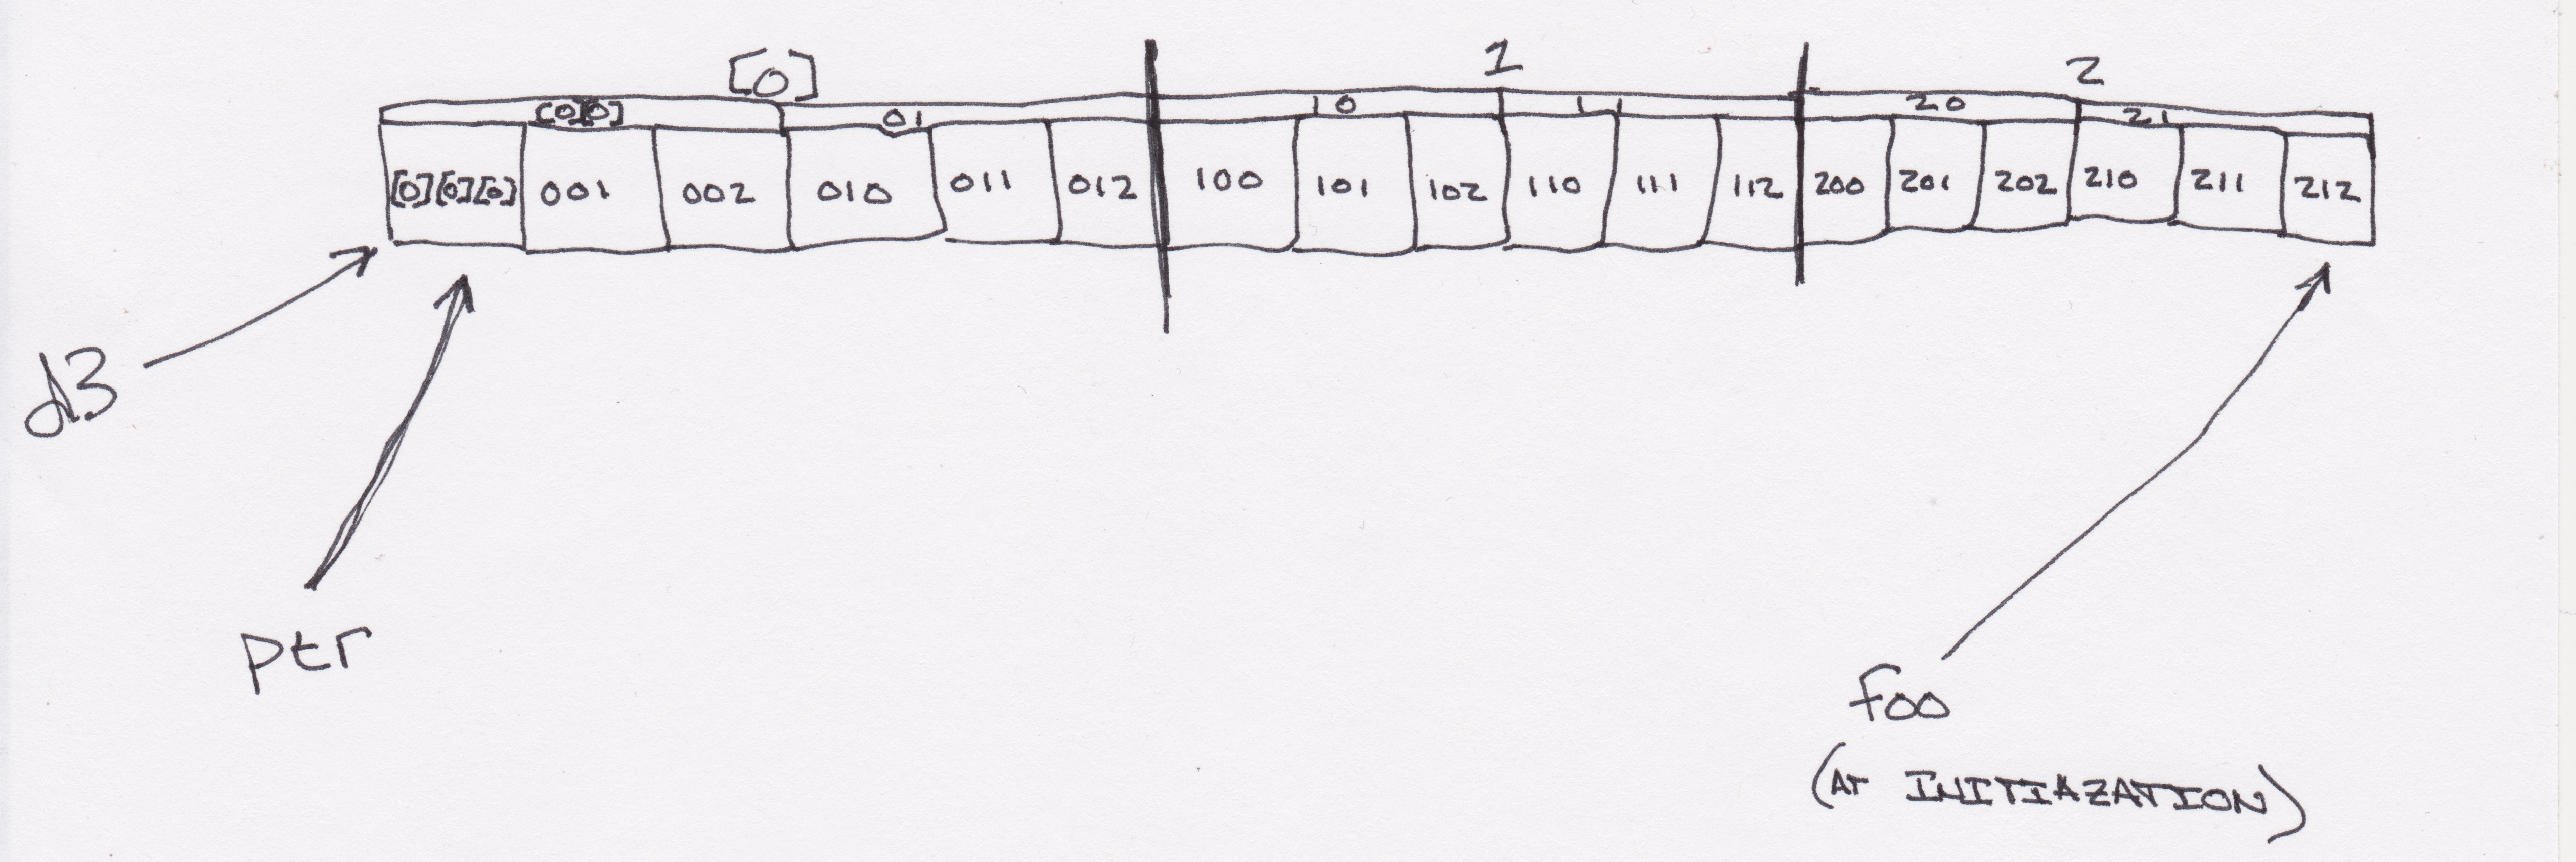 [0] 1 2
[0][0] 01 10 11 20 21
[0][0][0] 001 002 010 011 012 100 101 102 110 111 112 200 201 202 210 211 212
d3
ptr
foo
(AT INITIAZATION)